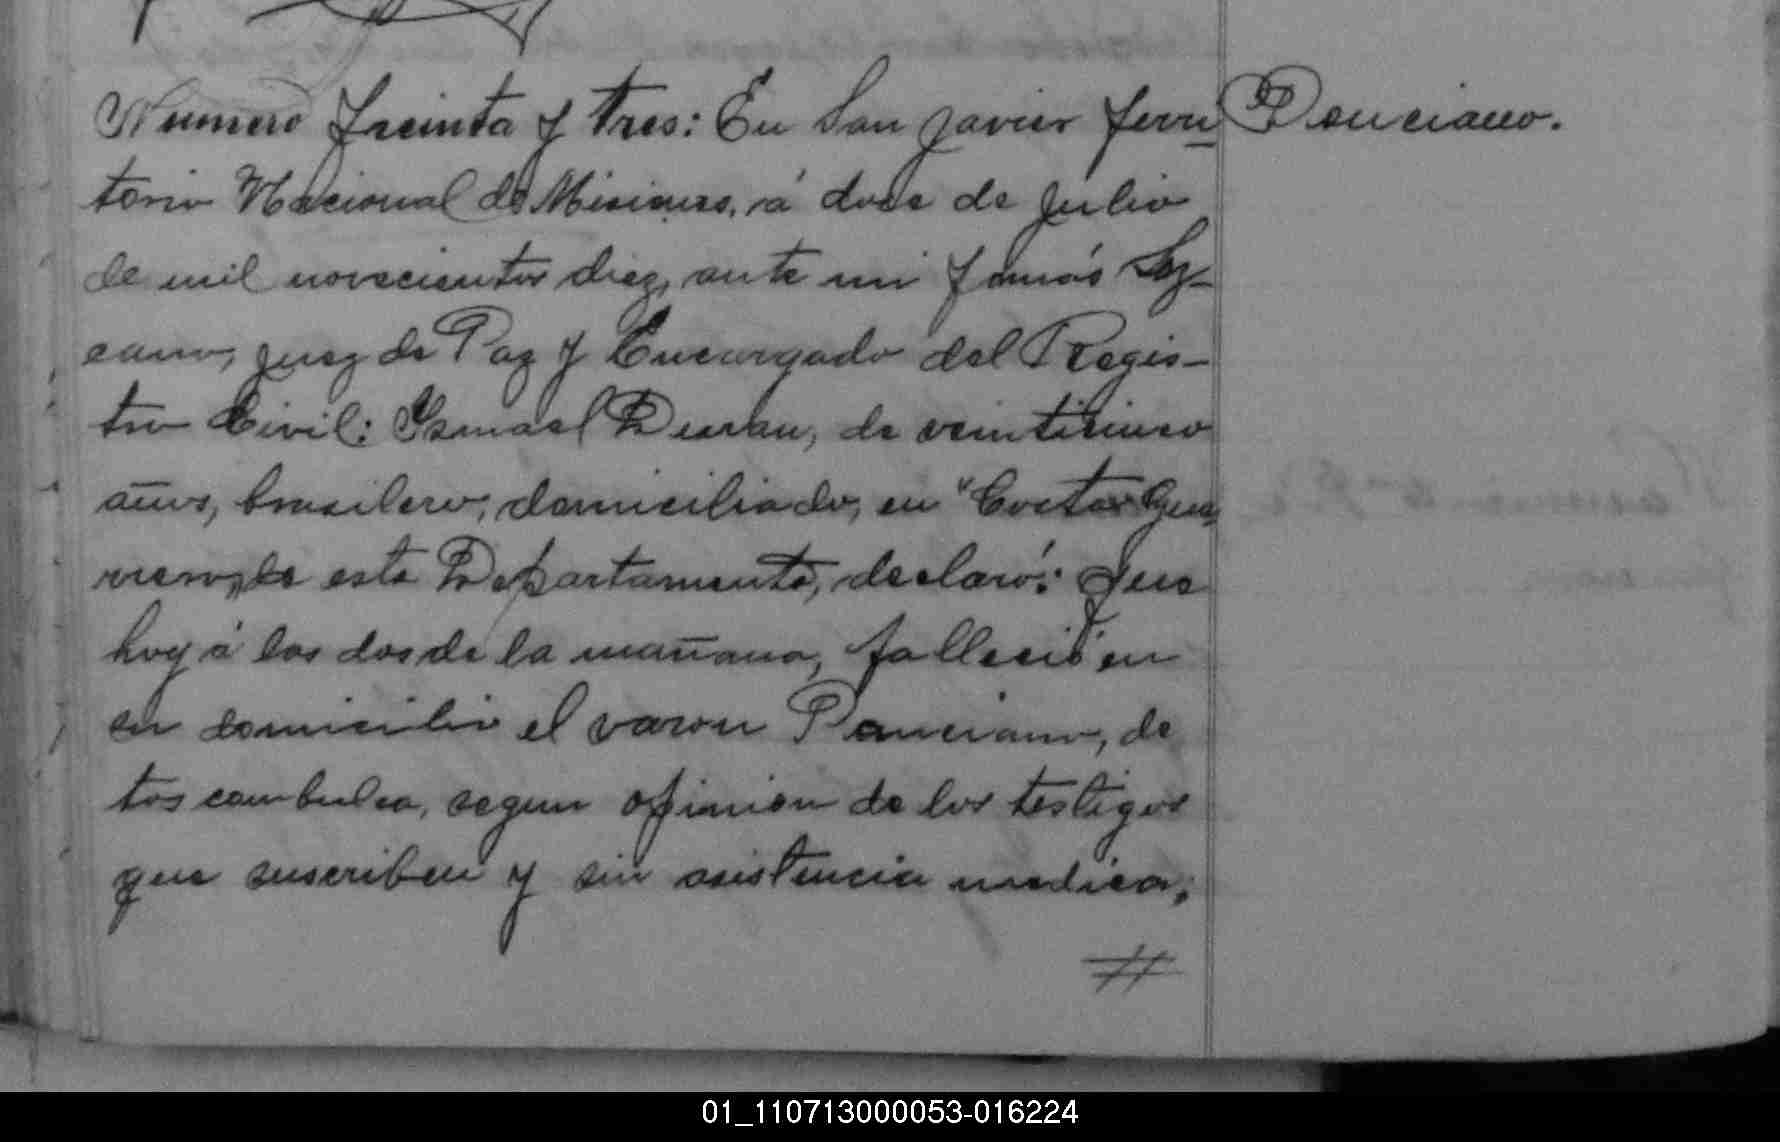 Numero treinta y tres: En San Javier Terri Ponciano.
torio Nacional de Misiones, á doce de Julio
de mil novecientos diez, ante mi Tomás Loz-
cano, Juez de Paz y Encargado del Regis-
tro Civil: Ismael Duran, de veinticinco
años, brasilero, domiciliado, en "Costa Gua
rero, de este Departamento, declaró: Que
hoy á las dos de la mañana, falleció en
su domicilio el varon Ponciano, de
tos combulsa, segun opinion de los testigos
que suscriben y sin asistencia medica;
01_110713000053-016224